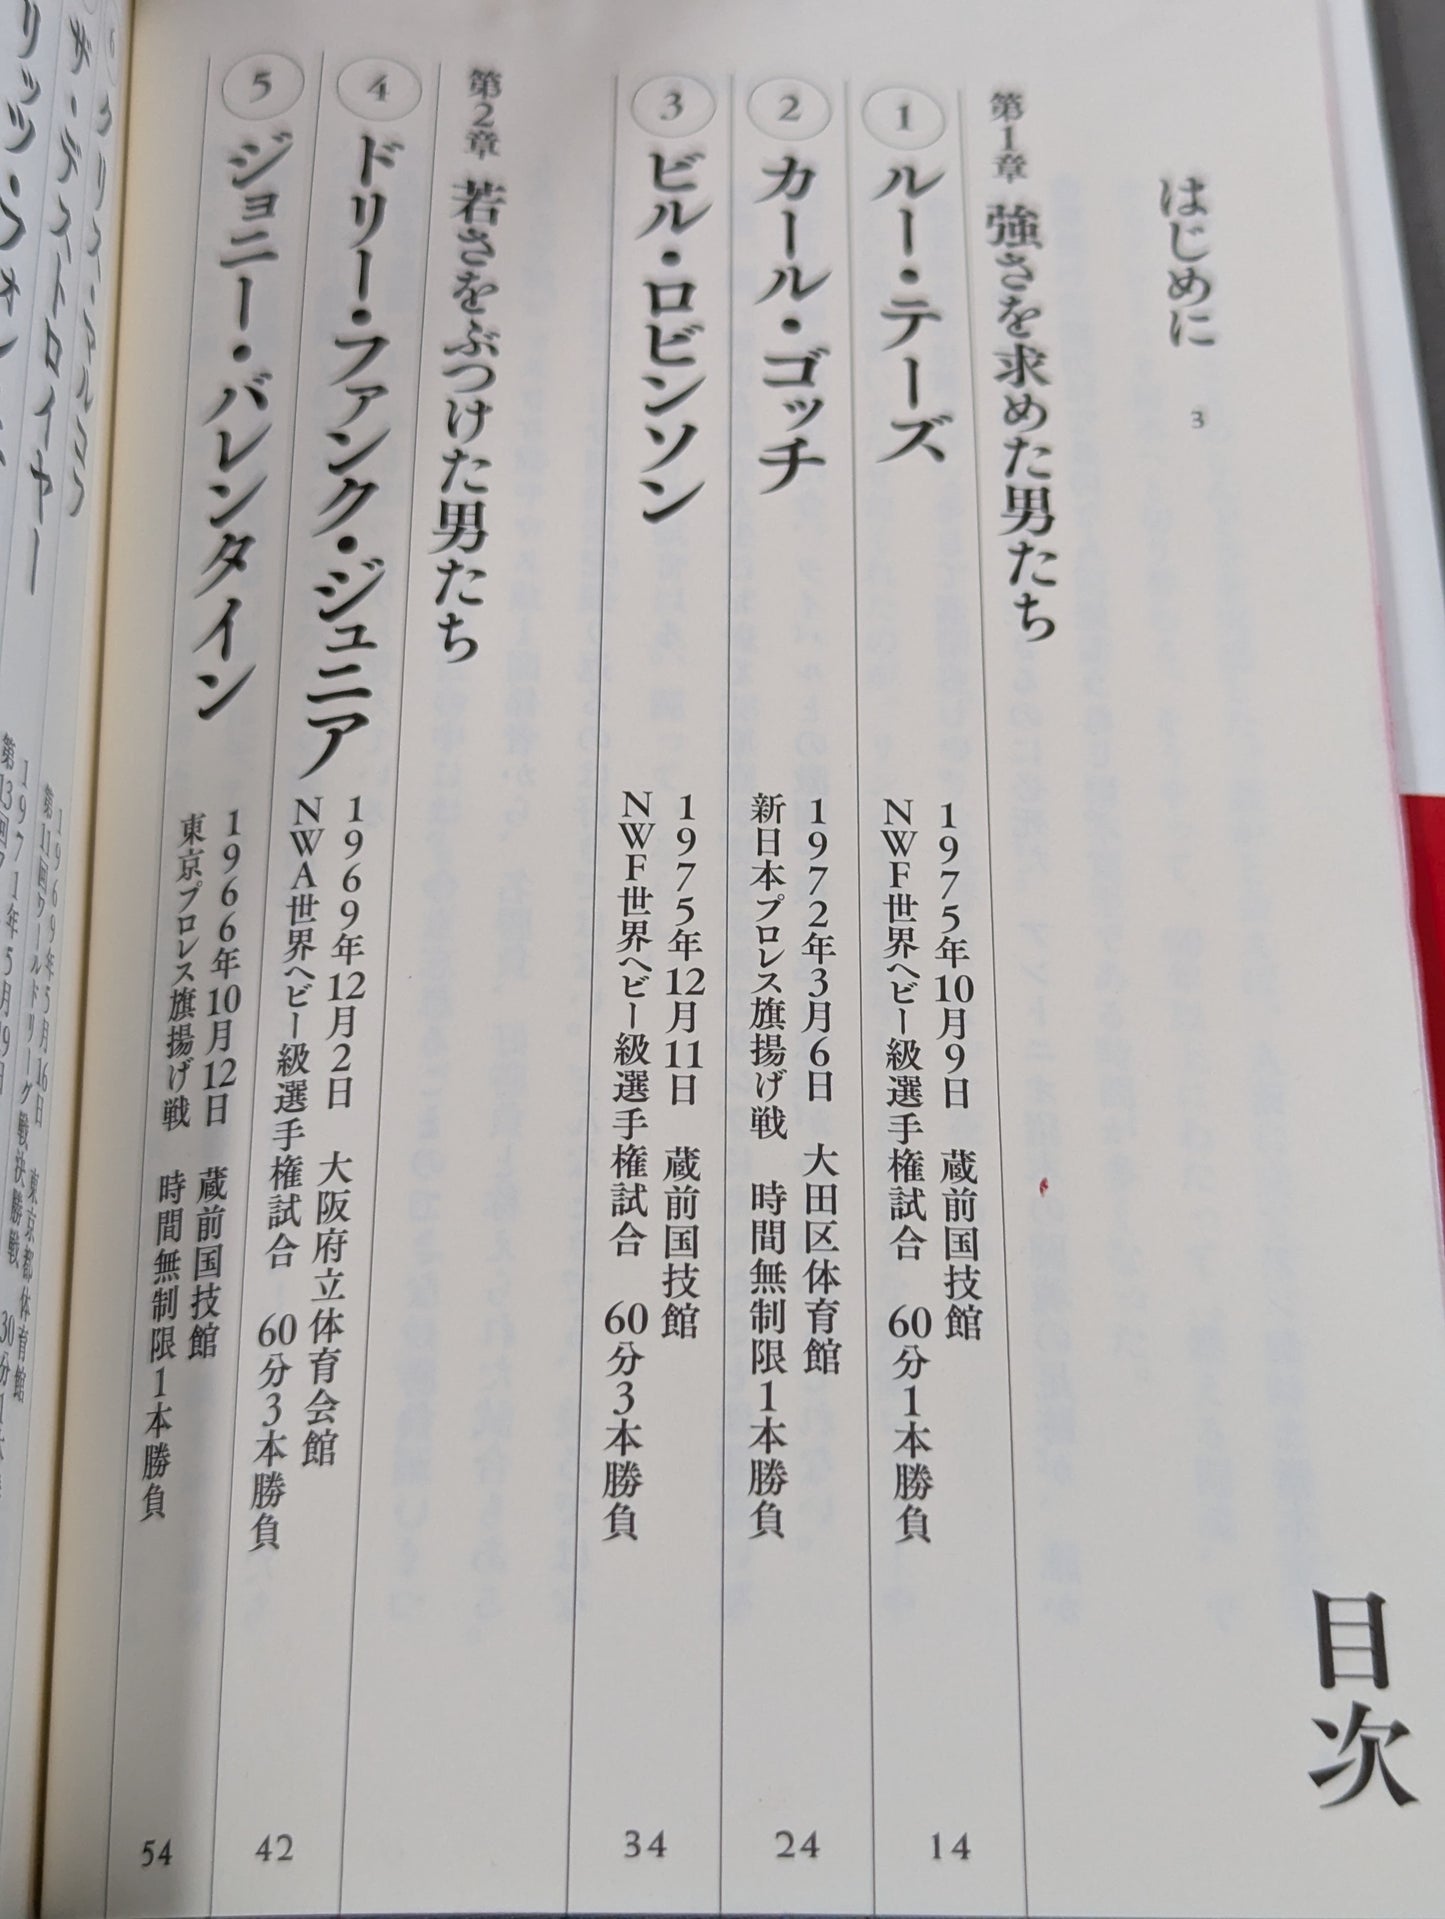 目次
はじめに 3
第1章 強さを求めた男たち
1 ルー・テーズ
1975年10月9日 蔵前国技館
NWF世界ヘビー級選手権試合 60分1本勝負
14
2 カール・ゴッチ
1972年3月6日 大田区体育館
新日本プロレス旗揚げ戦 時間無制限1本勝負
24
3 ビル・ロビンソン
1975年12月11日 蔵前国技館
NWF世界ヘビー級選手権試合 60分3本勝負
34
第2章 若さをぶつけた男たち
4 ドリー・ファンク・ジュニア
1969年12月2日 大阪府立体育会館
NWA世界ヘビー級選手権試合 60分3本勝負
42
5 ジョニー・バレンタイン
1966年10月12日 蔵前国技館
東京プロレス旗揚げ戦 時間無制限1本勝負
54
6 クリス・マルコフ
1969年5月16日 東京都体育館
第11回ワールドリーグ戦決勝戦 30分1本
ザ・デストロイヤー
1971年5月19日
第13回